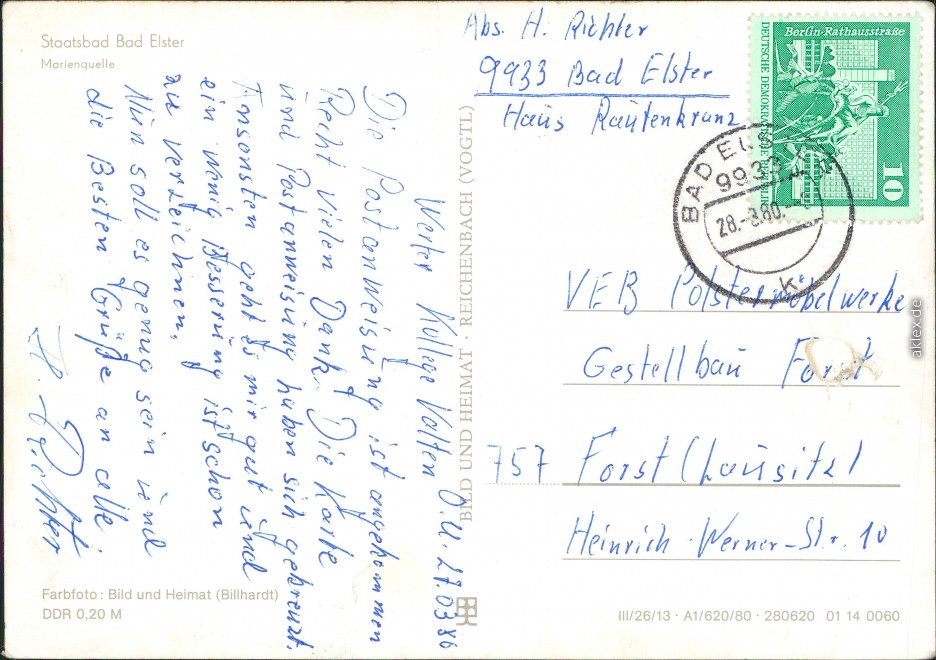 Staatsbad Bad Elster
Marienquelle
Abs. H. Richter
9933 Bad Elster
Haus Rautenkranz
Berlin-Rathausstraße
DEUTSCHE DEMOKRATISCHE REPUBLIK
10
BAD ELSTER
9933
28.-3.80.
Werter Kollege Valten
Die Postanweisung ist angekommen
Recht vielen Dank. Die Karte
und Postanweisung haben sich gekreuzt.
Ansonsten geht es mir gut und
ein wenig Besserung ist schon
zu verzeichnen.
Nun soll es genug sein und
die Besten Grüße an alle.
H. Richter
BILD UND HEIMAT · REICHENBACH (VOGTL)
VEB Polstermöbelwerke
Gestellbau Forst
757 Forst (Lausitz)
Heinrich-Werner-Str. 10
Farbfoto: Bild und Heimat (Billhardt)
DDR 0,20 M
III/26/13 · A1/620/80 · 280620 01 14 0060
aklex.de